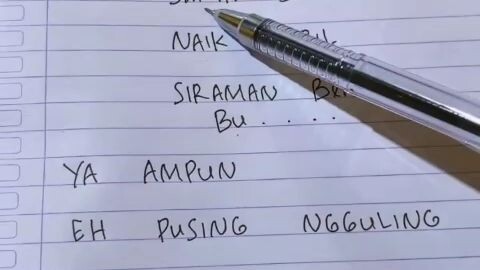 NAIK
SIRAMAN
BU.....
YA AMPUN
EH PUSING NGGULING